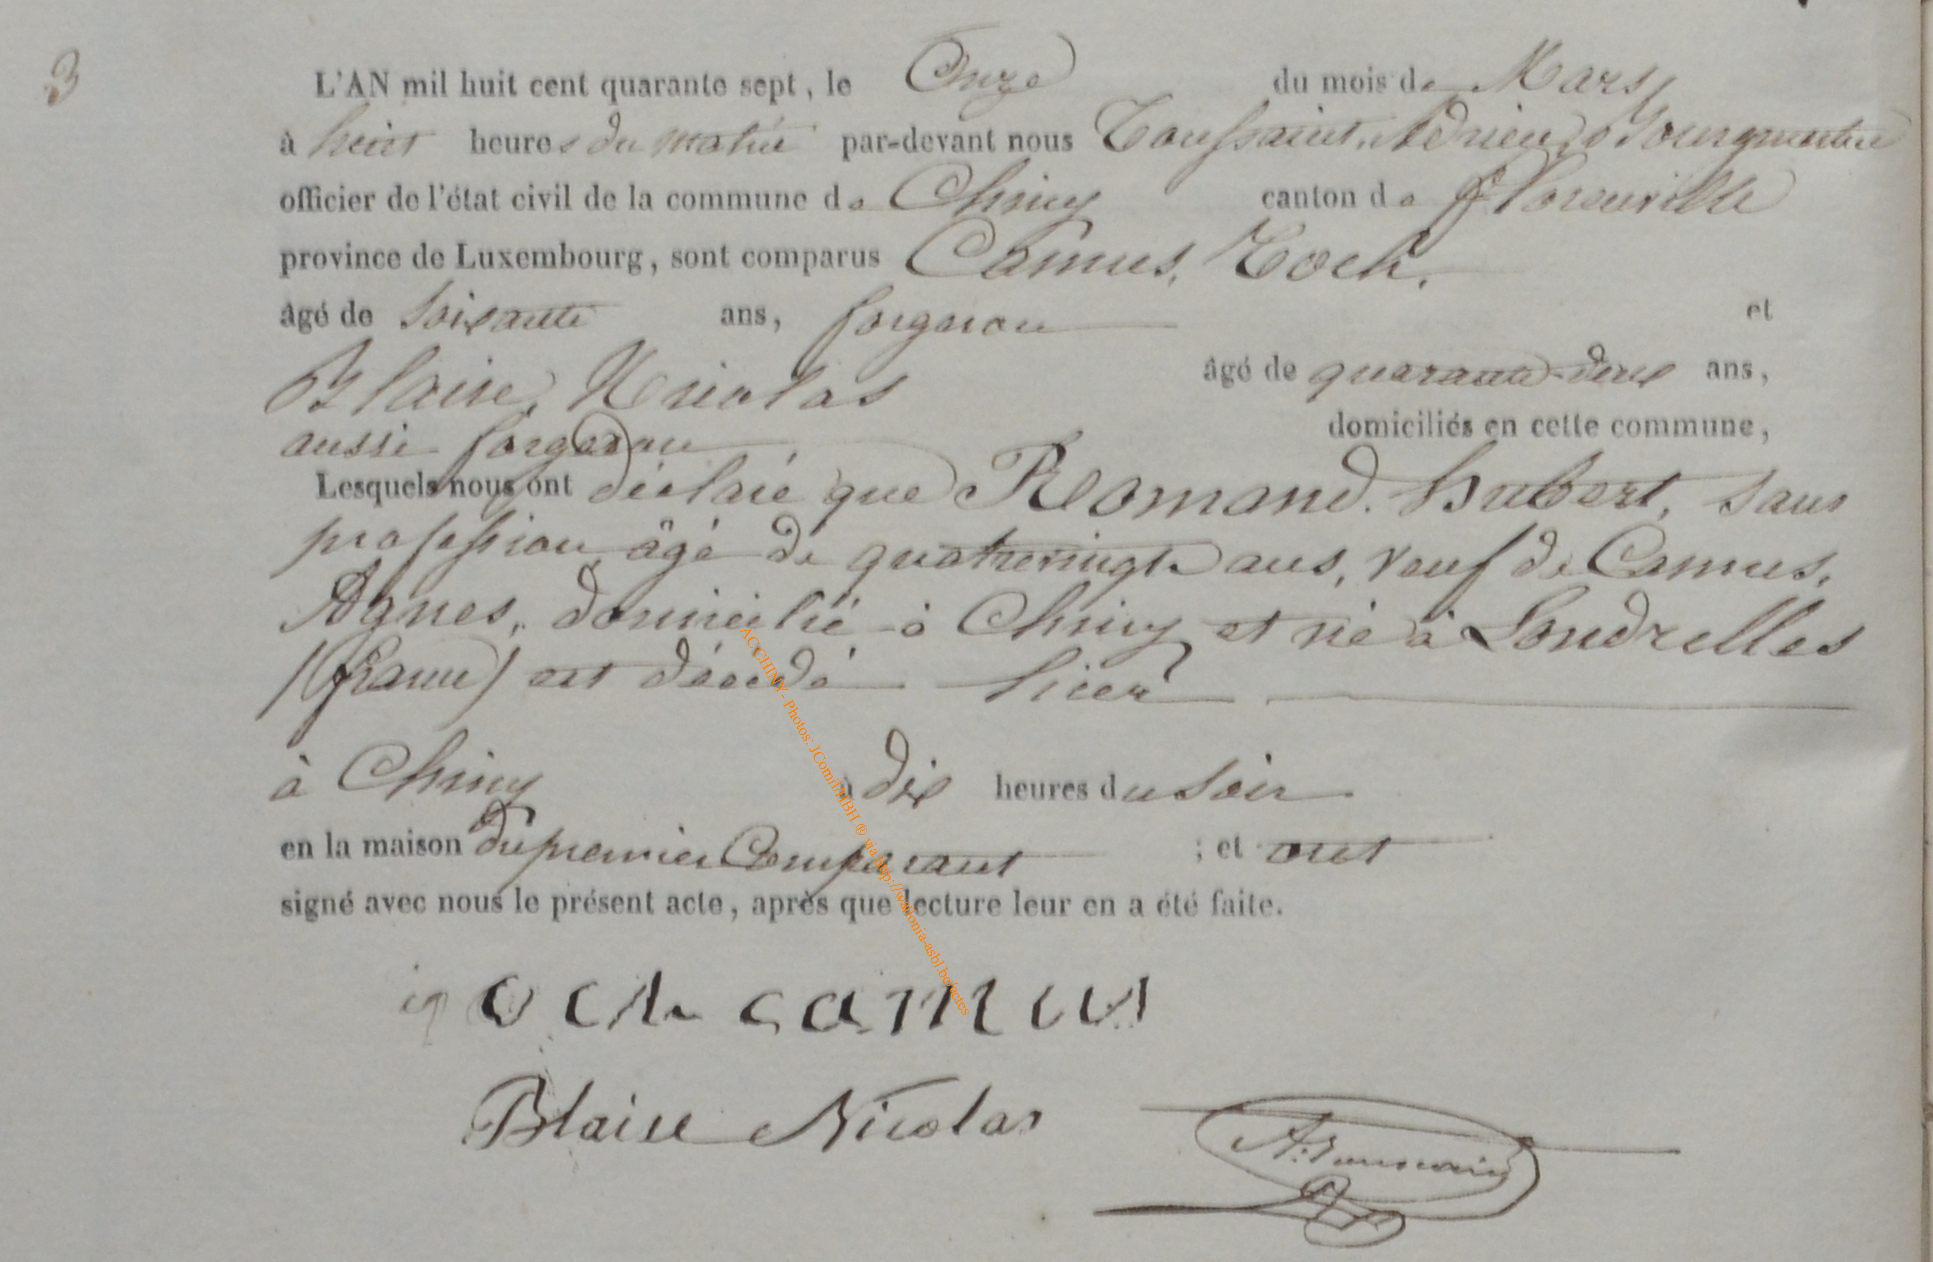 3
L'AN mil huit cent quarante sept, le Onze du mois de Mars
à huit heures du matin par-devant nous Toussaint, Adrien, Bourgmestre
officier de l'état civil de la commune de Chiny canton de Florenville
province de Luxembourg, sont comparus Camus, Roch,
âgé de Soixante ans, forgeron et
Blaise, Nicolas âgé de quarante-deux ans,
aussi forgeron domiciliés en cette commune,
Lesquels nous ont déclaré que Romand. Hubert, sans
profession, âgé de quatrevingt ans, veuf de Camus,
Agnes, domicilié à Chiny et né à Londrelles
(france) est décédé hier
à Chiny à dix heures du Soir
en la maison du premier Comparant ; et ont
signé avec nous le présent acte, après que lecture leur en a été faite.
och camus
Blaise Nicolas
A. Toussaint
AC CHINY - Photos: JComïn